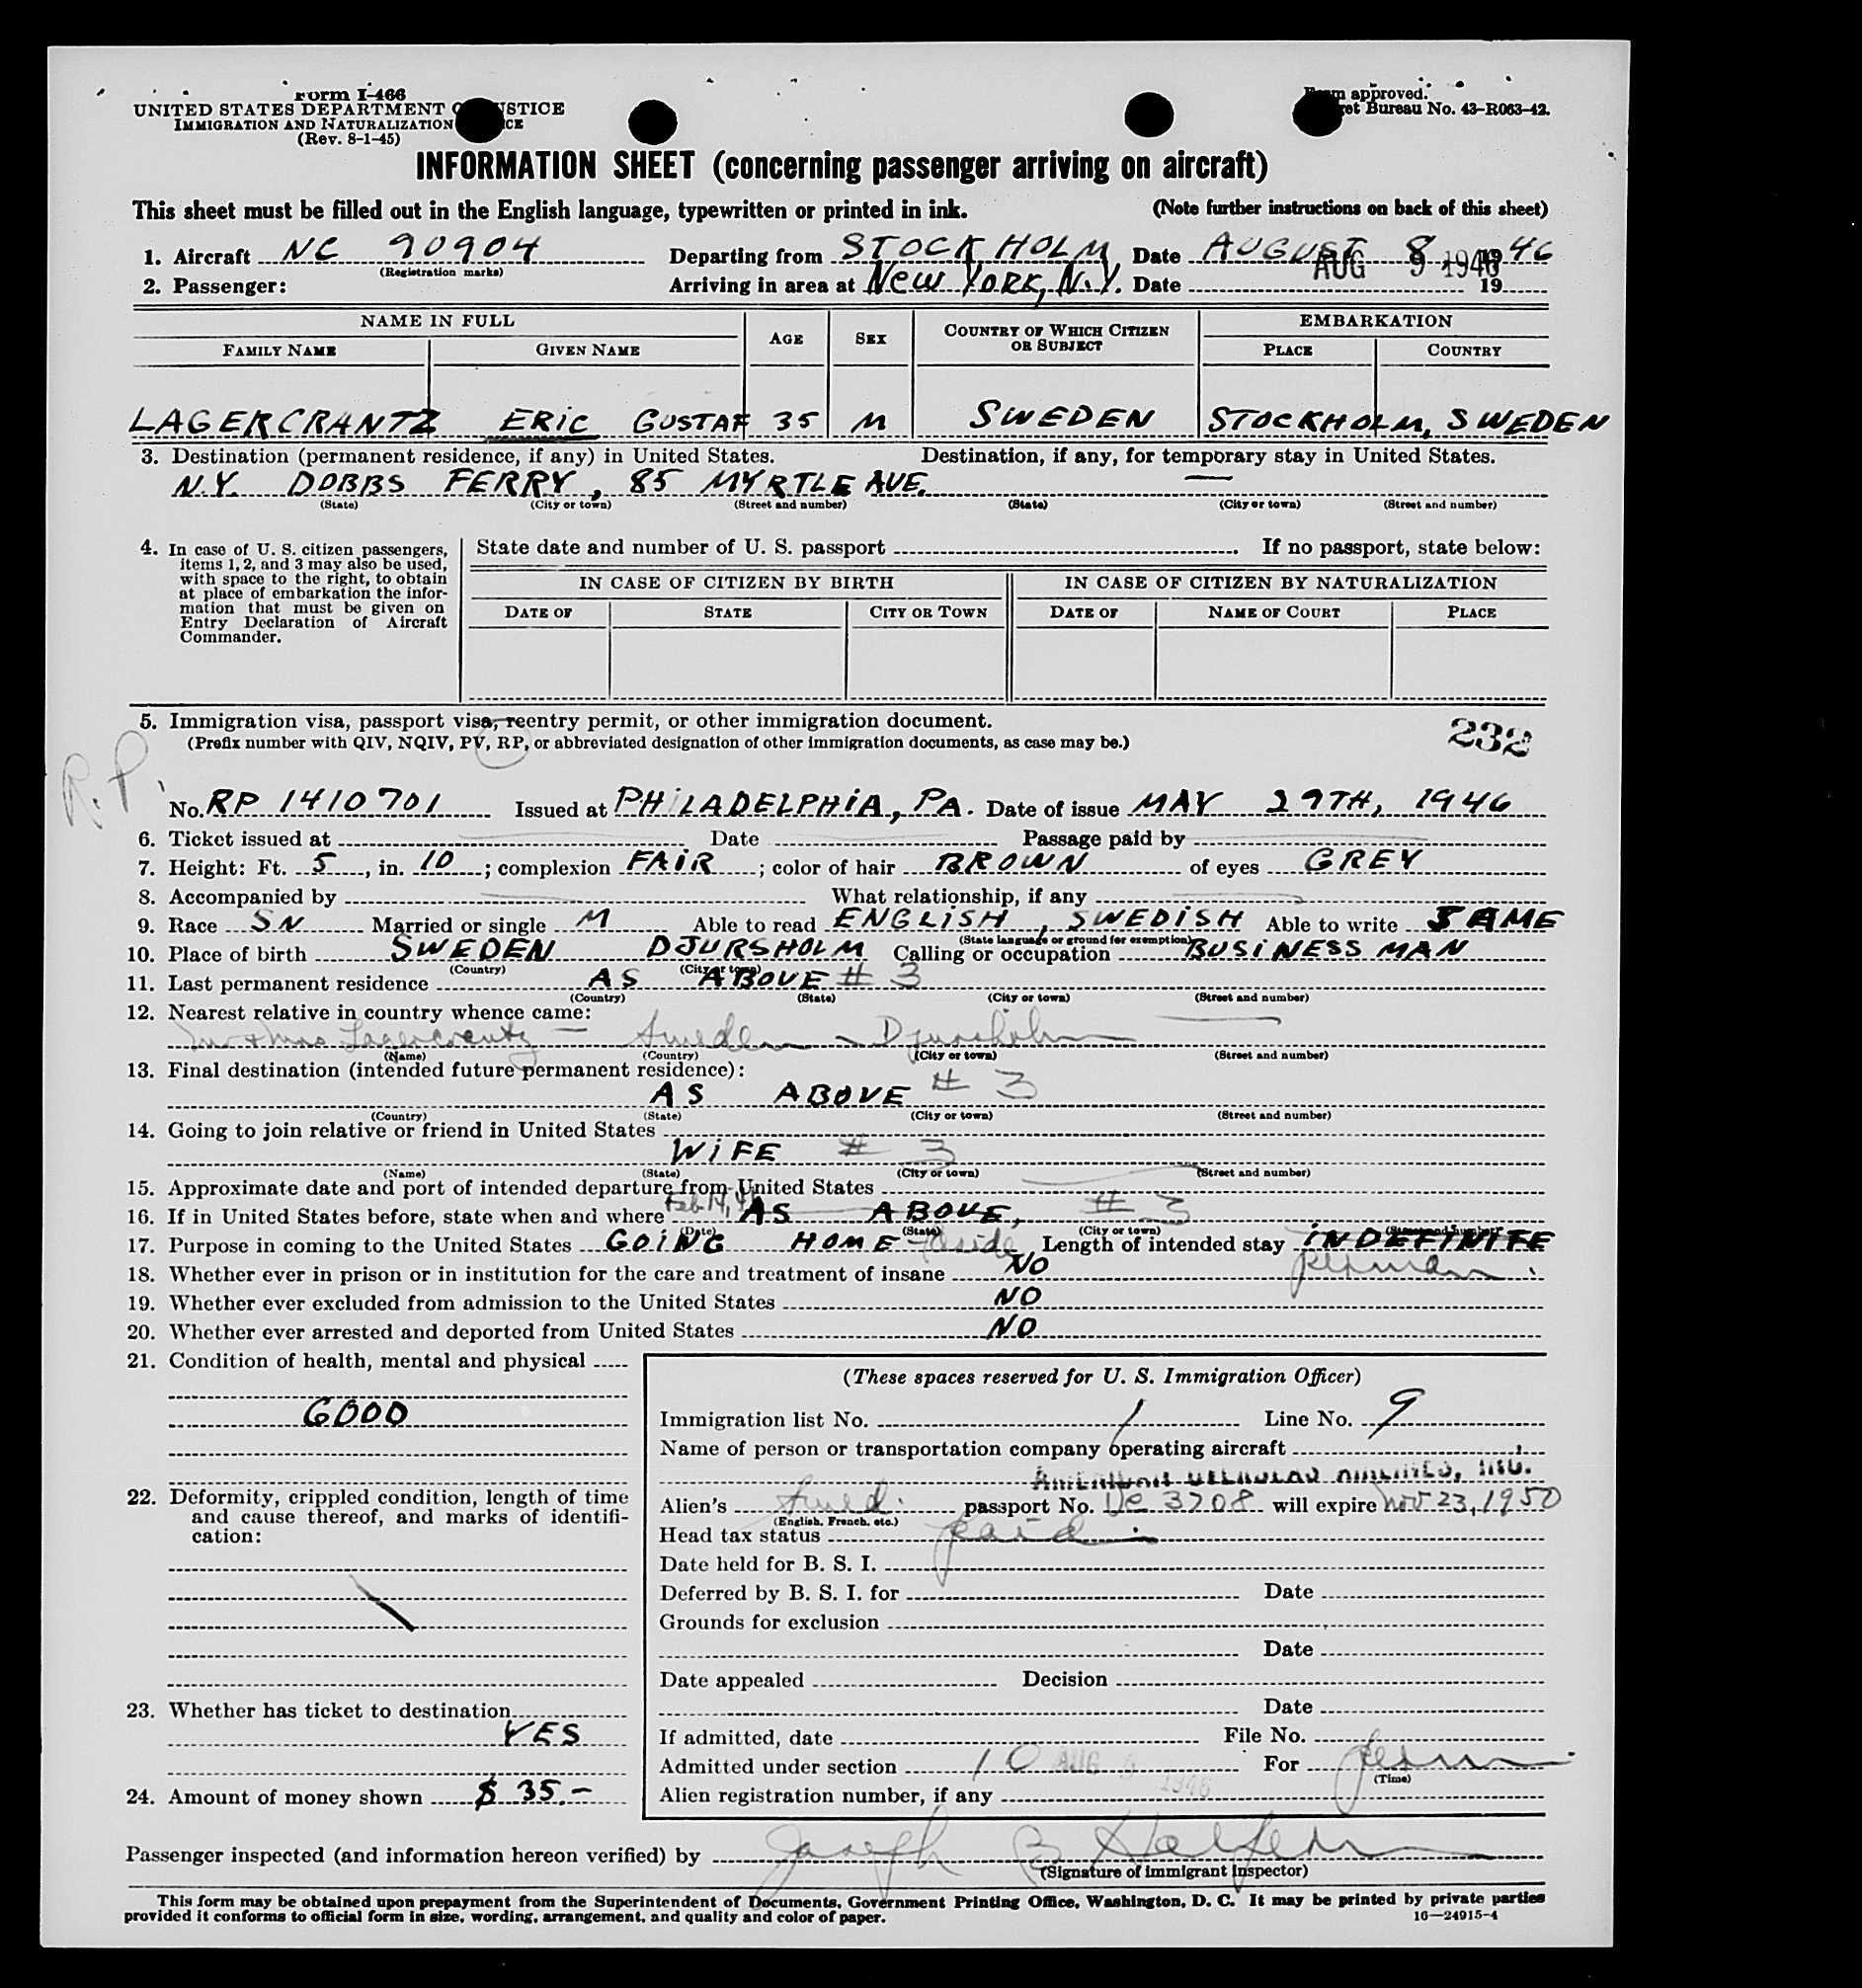 Form I-466
UNITED STATES DEPARTMENT OF JUSTICE
IMMIGRATION AND NATURALIZATION SERVICE
(Rev. 8-1-45)
Form approved.
Budget Bureau No. 43-R063-42.
INFORMATION SHEET (concerning passenger arriving on aircraft)
This sheet must be filled out in the English language, typewritten or printed in ink. (Note further instructions on back of this sheet)
1. Aircraft NC 90904 Departing from STOCKHOLM Date AUGUST 8 1946
(Registration marks) AUG 9 1946
2. Passenger: Arriving in area at NEW YORK, N.Y. Date 19
NAME IN FULL AGE SEX COUNTRY OF WHICH CITIZEN OR SUBJECT EMBARKATION
FAMILY NAME GIVEN NAME PLACE COUNTRY
LAGERCRANTZ ERIC GUSTAF 35 M SWEDEN STOCKHOLM, SWEDEN
3. Destination (permanent residence, if any) in United States. Destination, if any, for temporary stay in United States.
N.Y. DOBBS FERRY, 85 MYRTLE AVE. —
(State) (City or town) (Street and number) (State) (City or town) (Street and number)
4. In case of U. S. citizen passengers, items 1, 2, and 3 may also be used, with space to the right, to obtain at place of embarkation the information that must be given on Entry Declaration of Aircraft Commander.
State date and number of U. S. passport . If no passport, state below:
IN CASE OF CITIZEN BY BIRTH IN CASE OF CITIZEN BY NATURALIZATION
DATE OF STATE CITY OR TOWN DATE OF NAME OF COURT PLACE
5. Immigration visa, passport visa, reentry permit, or other immigration document. 232
(Prefix number with QIV, NQIV, PV, RP, or abbreviated designation of other immigration documents, as case may be.)
R.P.
No. RP 1410701 Issued at PHILADELPHIA, PA. Date of issue MAY 29TH, 1946
6. Ticket issued at Date Passage paid by
7. Height: Ft. 5, in. 10; complexion FAIR; color of hair BROWN of eyes GREY
8. Accompanied by What relationship, if any
9. Race SN Married or single M Able to read ENGLISH, SWEDISH Able to write SAME
(State language or ground for exemption)
10. Place of birth SWEDEN DJURSHOLM Calling or occupation BUSINESS MAN
(Country) (City or town)
11. Last permanent residence AS ABOVE # 3
(Country) (State) (City or town) (Street and number)
12. Nearest relative in country whence came:
Lagercrantz — Sweden — Djursholm —
(Name) (Country) (City or town) (Street and number)
13. Final destination (intended future permanent residence):
AS ABOVE # 3
(Country) (State) (City or town) (Street and number)
14. Going to join relative or friend in United States
WIFE # 3
(Name) (State) (City or town) (Street and number)
15. Approximate date and port of intended departure from United States
16. If in United States before, state when and where Feb 14, AS ABOVE, # 3
(Date) (State) (City or town) (Street and number)
17. Purpose in coming to the United States GOING HOME Length of intended stay INDEFINITE
18. Whether ever in prison or in institution for the care and treatment of insane NO
19. Whether ever excluded from admission to the United States NO
20. Whether ever arrested and deported from United States NO
21. Condition of health, mental and physical
GOOD
22. Deformity, crippled condition, length of time and cause thereof, and marks of identification:
23. Whether has ticket to destination
YES
24. Amount of money shown $ 35.–
(These spaces reserved for U. S. Immigration Officer)
Immigration list No. 1 Line No. 9
Name of person or transportation company operating aircraft
AMERICAN OVERSEAS AIRLINES, INC.
Alien's Swed. passport No. 3708 will expire Nov 23, 1950
(English, French, etc.)
Head tax status paid
Date held for B. S. I.
Deferred by B. S. I. for Date
Grounds for exclusion
Date
Date appealed Decision
Date
If admitted, date File No.
Admitted under section 10 AUG 9 1946 For perm
(Time)
Alien registration number, if any
Passenger inspected (and information hereon verified) by Joseph B
(Signature of Immigrant Inspector)
This form may be obtained upon prepayment from the Superintendent of Documents, Government Printing Office, Washington, D. C. It may be printed by private parties
provided it conforms to official form in size, wording, arrangement, and quality and color of paper. 16—24915-4